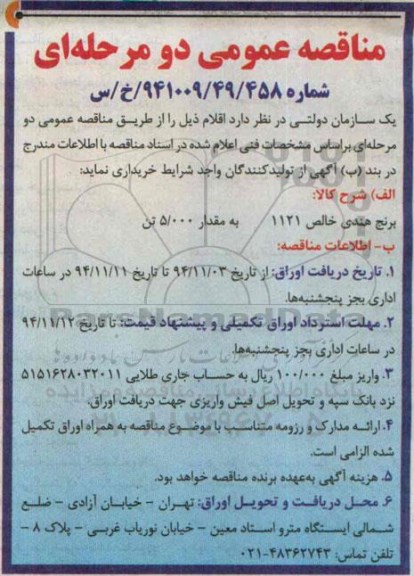 مناقصه عمومی دو مرحله‌ای
شماره ۹۴۱۰۰۹/۴۹/۴۵۸/خ/س
یک سازمان دولتی در نظر دارد اقلام ذیل را از طریق مناقصه عمومی دو
مرحله‌ای براساس مشخصات فنی اعلام شده در اسناد مناقصه با اطلاعات مندرج
در بند (ب) آگهی از تولیدکنندگان واجد شرایط خریداری نماید:
الف) شرح کالا:
برنج هندی خالص ۱۱۲۱ به مقدار ۵/۰۰۰ تن
ب- اطلاعات مناقصه:
۱. تاریخ دریافت اوراق: از تاریخ ۹۴/۱۱/۰۳ تا تاریخ ۹۴/۱۱/۱۱ در ساعات
اداری بجز پنجشنبه‌ها.
۲. مهلت استرداد اوراق تکمیلی و پیشنهاد قیمت: تا تاریخ ۹۴/۱۱/۱۲
در ساعات اداری بجز پنجشنبه‌ها.
۳. واریز مبلغ ۱۰۰/۰۰۰ ریال به حساب جاری طلایی ۵۱۵۱۶۲۸۰۳۲۰۱۱
نزد بانک سپه و تحویل اصل فیش واریزی جهت دریافت اوراق.
۴. ارائه مدارک و رزومه متناسب با موضوع مناقصه به همراه اوراق تکمیل
شده الزامی است.
۵. هزینه آگهی به‌عهده برنده مناقصه خواهد بود.
۶. محل دریافت و تحویل اوراق: تهران - خیابان آزادی - ضلع
شمالی ایستگاه مترو استاد معین - خیابان نوریاب غربی - پلاک ۸ -
تلفن تماس: ۴۸۳۶۲۷۴۳-۰۲۱
ParsNamadData